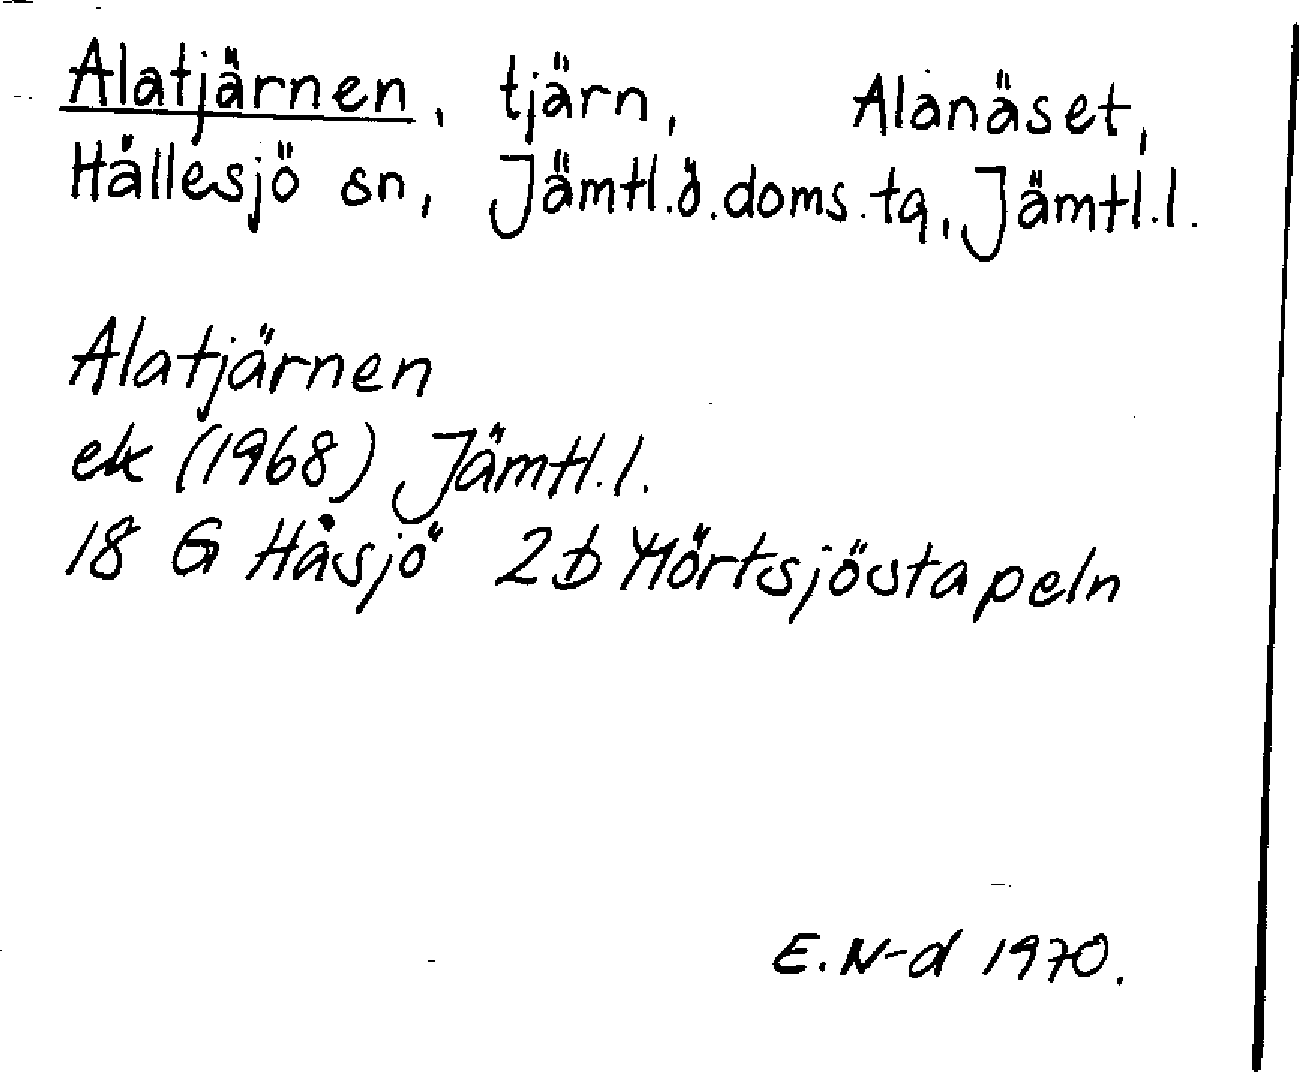 Alatjärnen, tjärn, Alanäset,
Hållesjö sn, Jämtl.ö.doms.tg, Jämtl.l.
Alatjärnen
ek (1968) Jämtl.l.
18 G Håsjö 2b Mörtsjöstapeln
E. N-d 1970.